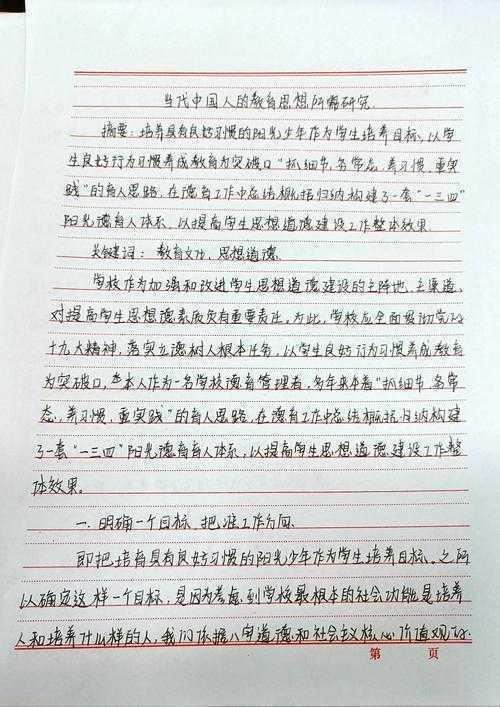 当代中国人的教育思想所需研究
摘要:培养具有良好习惯的阳光少年作为学生培养目标,以学
生良好行为习惯养成教育为突破口"抓细节,务常态,养习惯,重实
践"的育人思路,在德育工作中总结概括归纳构建了一套"一三四"
阳光德育人体系,以提高学生思想道德建设工作整体效果。
关键词:教育文化,思想道德
学校作为加强和改进学生思想道德建设的主阵地、主渠道,
对提高学生思想德素质负有重要责任。为此,学校应全面贯彻党的
十九大精神,落实立德树人根本任务,以学生良好行为习惯养成教育
为突破口,本人作为一名学校德育管理者,多年来本着"抓细节,务常
态,养习惯,重实践"的育人思路,在德育工作中总结概括归纳构建
了一套"一三四"阳光德育育人体系,以提高学生思想道德建设工作整
体效果。
一、明确一个目标,把准工作方向
即把培育具有良好习惯的阳光少年作为学生培养目标。之所
以确定这样一个目标,是因为考虑到学校最根本的社会功能是培养
人和培养什么样的人,我们依据八字道德和社会主义核心价值观的
第 页